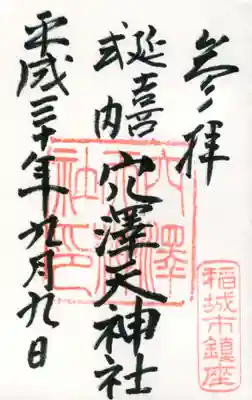 参拝
延喜式内
穴澤天神社
平成三十年九月九日
穴澤天神社印
稲城市鎮座